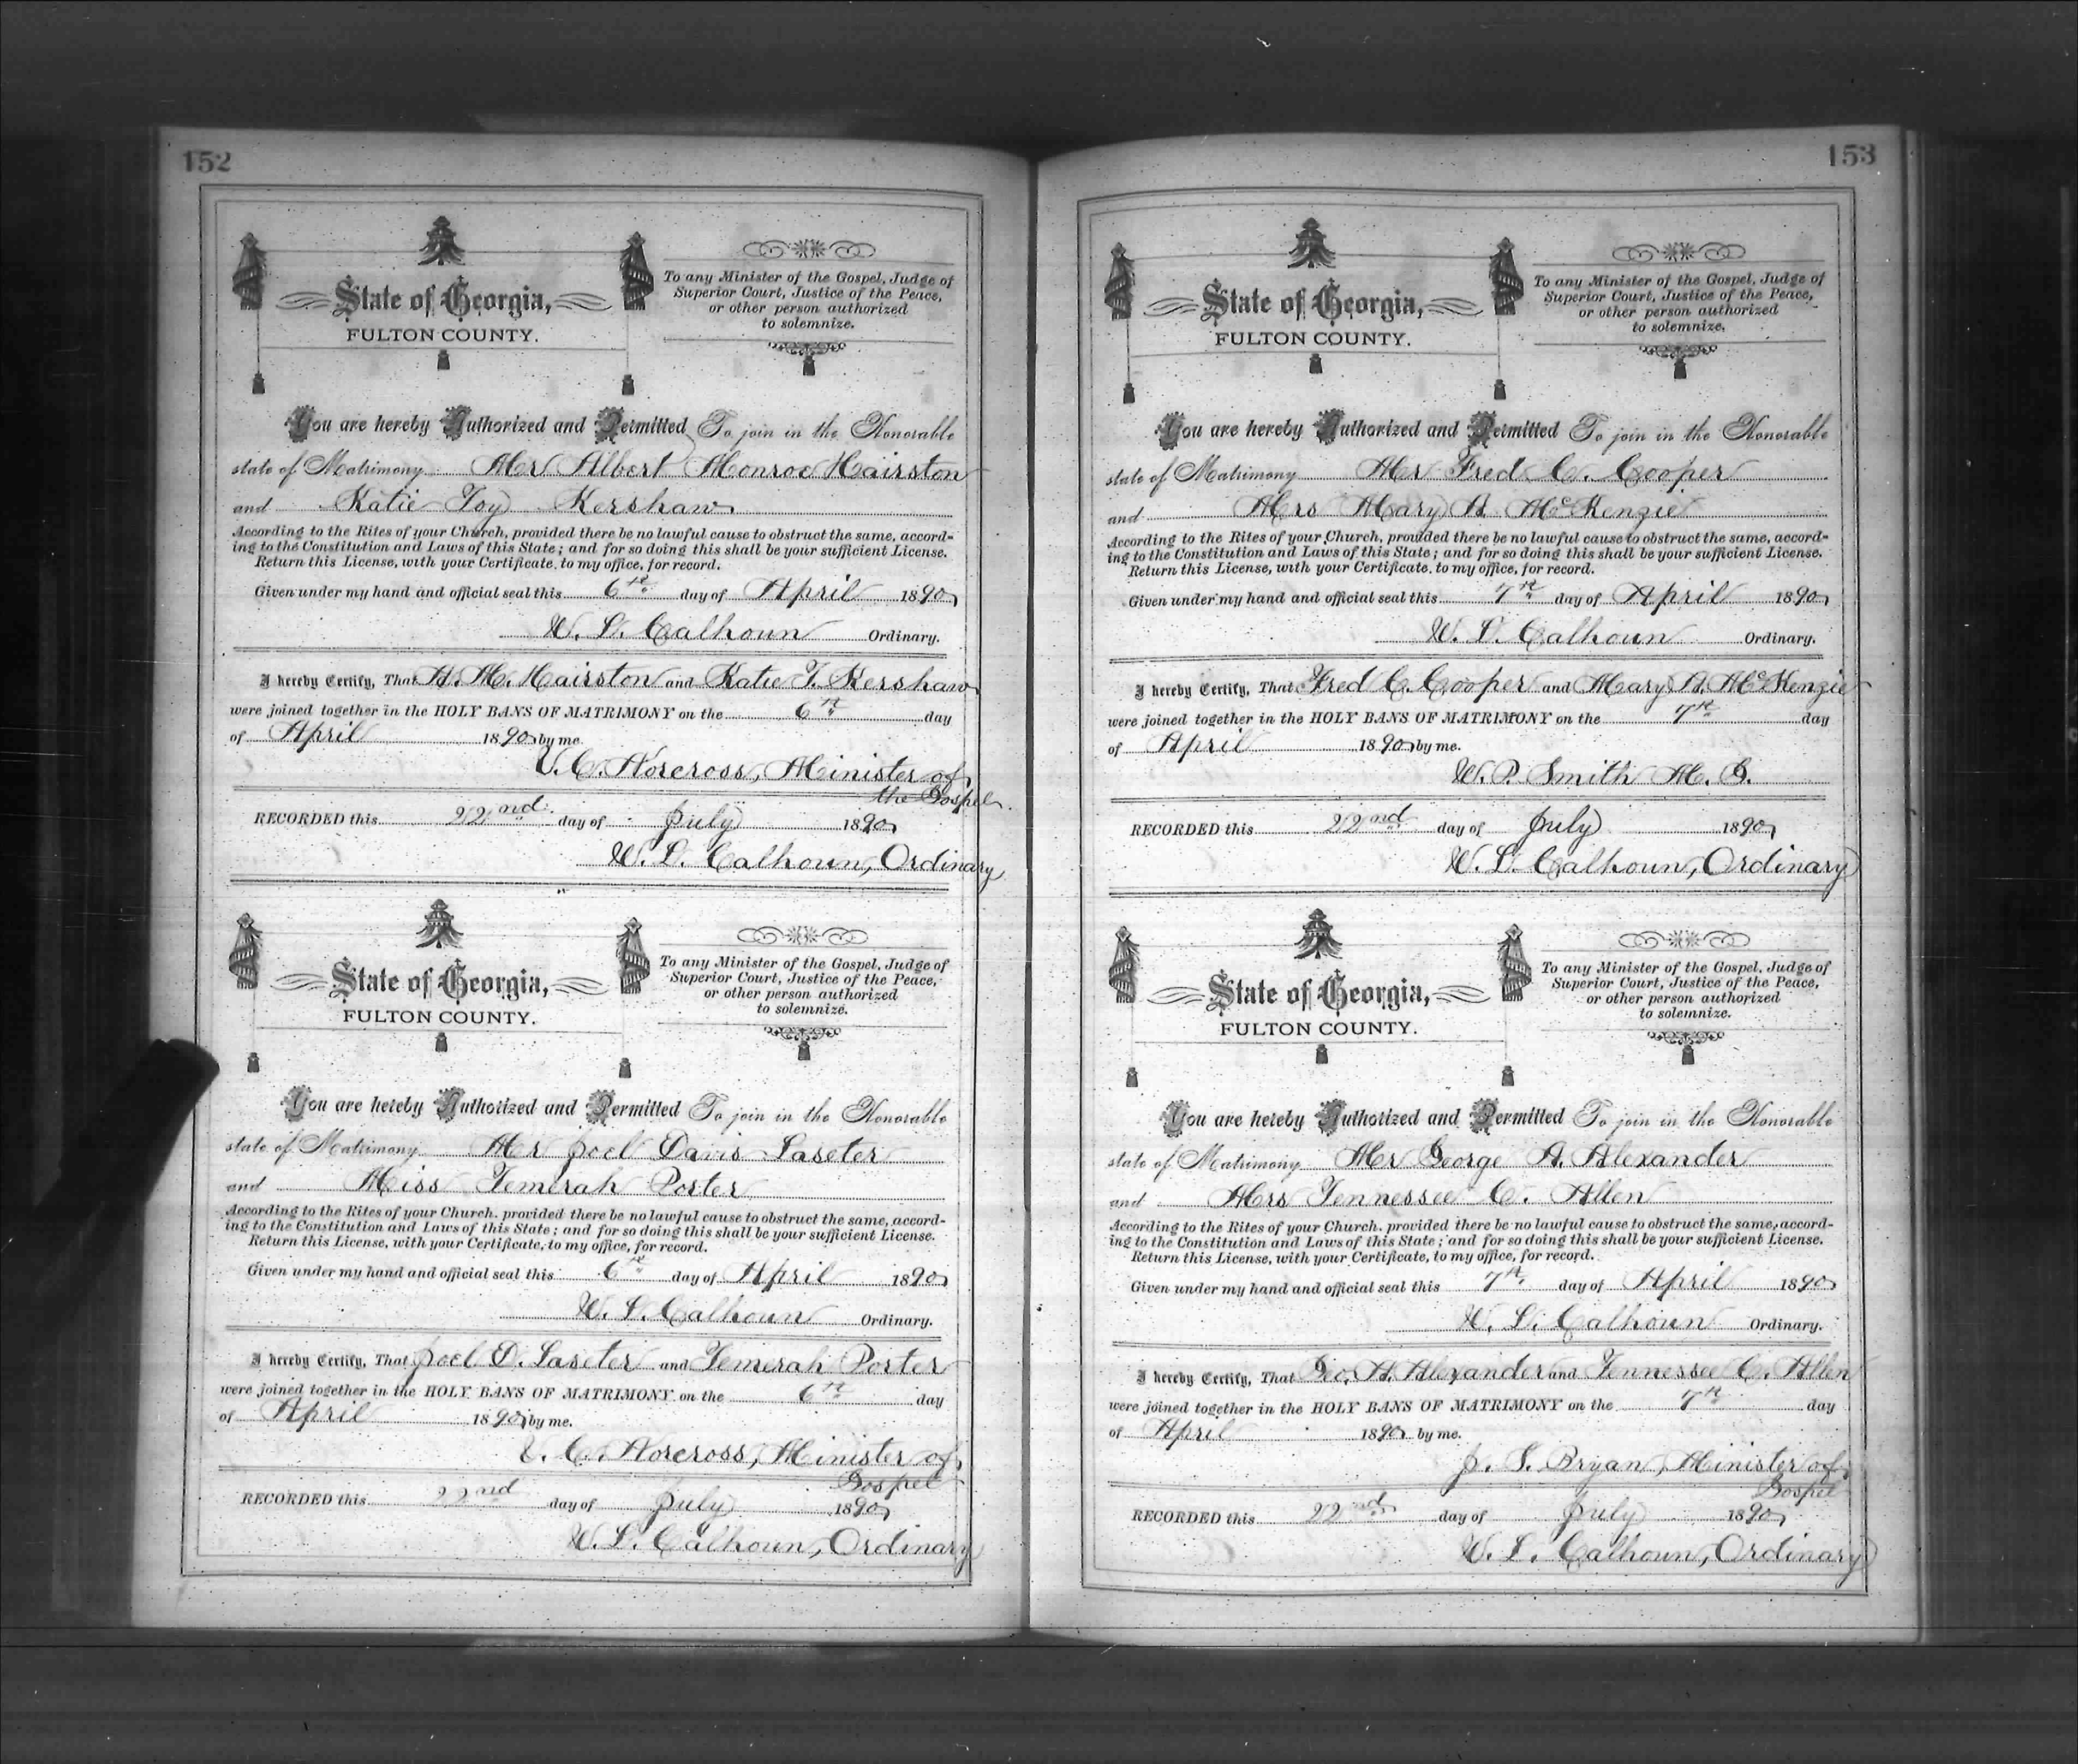 152
State of Georgia,
FULTON COUNTY.
To any Minister of the Gospel, Judge of
Superior Court, Justice of the Peace,
or other person authorized
to solemnize.
You are hereby Authorized and Permitted To join in the Honorable
state of Matrimony Mr Albert Monroe Hairston
and Katie Toy Kershaw
According to the Rites of your Church, provided there be no lawful cause to obstruct the same, accord-
ing to the Constitution and Laws of this State; and for so doing this shall be your sufficient License.
Return this License, with your Certificate, to my office, for record.
Given under my hand and official seal this 6th day of April 1890
W. L. Calhoun Ordinary.
I hereby Certify, That A. M. Hairston and Katie T. Kershaw
were joined together in the HOLY BANS OF MATRIMONY on the 6th day
of April 1890 by me.
V. C. Norcross, Minister of
the Gospel.
RECORDED this 22nd day of July 1890
W. L. Calhoun, Ordinary
State of Georgia,
FULTON COUNTY.
To any Minister of the Gospel, Judge of
Superior Court, Justice of the Peace,
or other person authorized
to solemnize.
You are hereby Authorized and Permitted To join in the Honorable
state of Matrimony Mr Joel Davis Laseter
and Miss Temerah Porter
According to the Rites of your Church, provided there be no lawful cause to obstruct the same, accord-
ing to the Constitution and Laws of this State; and for so doing this shall be your sufficient License.
Return this License, with your Certificate, to my office, for record.
Given under my hand and official seal this 6th day of April 1890
W. L. Calhoun Ordinary.
I hereby Certify, That Joel D. Laseter and Temerah Porter
were joined together in the HOLY BANS OF MATRIMONY on the 6th day
of April 1890 by me.
V. C. Norcross, Minister of
Gospel
RECORDED this 22nd day of July 1890
W. L. Calhoun, Ordinary
153
State of Georgia,
FULTON COUNTY.
To any Minister of the Gospel, Judge of
Superior Court, Justice of the Peace,
or other person authorized
to solemnize.
You are hereby Authorized and Permitted To join in the Honorable
state of Matrimony Mr Fred C. Cooper
and Mrs Mary A. McKenzie
According to the Rites of your Church, provided there be no lawful cause to obstruct the same, accord-
ing to the Constitution and Laws of this State; and for so doing this shall be your sufficient License.
Return this License, with your Certificate, to my office, for record.
Given under my hand and official seal this 7th day of April 1890
W. L. Calhoun Ordinary.
I hereby Certify, That Fred C. Cooper and Mary A. McKenzie
were joined together in the HOLY BANS OF MATRIMONY on the 7th day
of April 1890 by me.
W. P. Smith M. G.
RECORDED this 22nd day of July 1890
W. L. Calhoun, Ordinary
State of Georgia,
FULTON COUNTY.
To any Minister of the Gospel, Judge of
Superior Court, Justice of the Peace,
or other person authorized
to solemnize.
You are hereby Authorized and Permitted To join in the Honorable
state of Matrimony Mr George A. Alexander
and Mrs Tennessee C. Allen
According to the Rites of your Church, provided there be no lawful cause to obstruct the same, accord-
ing to the Constitution and Laws of this State; and for so doing this shall be your sufficient License.
Return this License, with your Certificate, to my office, for record.
Given under my hand and official seal this 7th day of April 1890
W. L. Calhoun Ordinary.
I hereby Certify, That Geo. A. Alexander and Tennessee C. Allen
were joined together in the HOLY BANS OF MATRIMONY on the 7th day
of April 1890 by me.
J. S. Bryan, Minister of
Gospel
RECORDED this 22nd day of July 1890
W. L. Calhoun, Ordinary